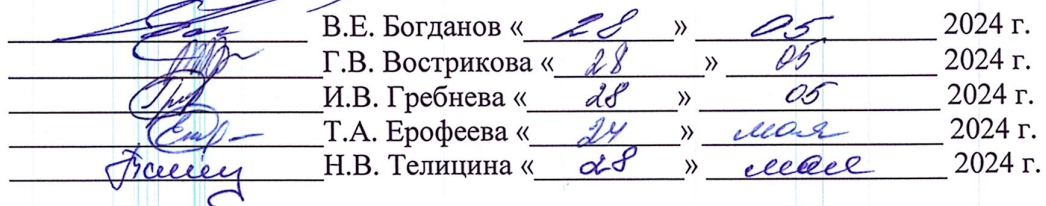 В.Е. Богданов « 28 » 05 2024 г.
Г.В. Вострикова « 28 » 05 2024 г.
И.В. Гребнева « 28 » 05 2024 г.
Т.А. Ерофеева « 24 » мая 2024 г.
Н.В. Телицина « 28 » мая 2024 г.